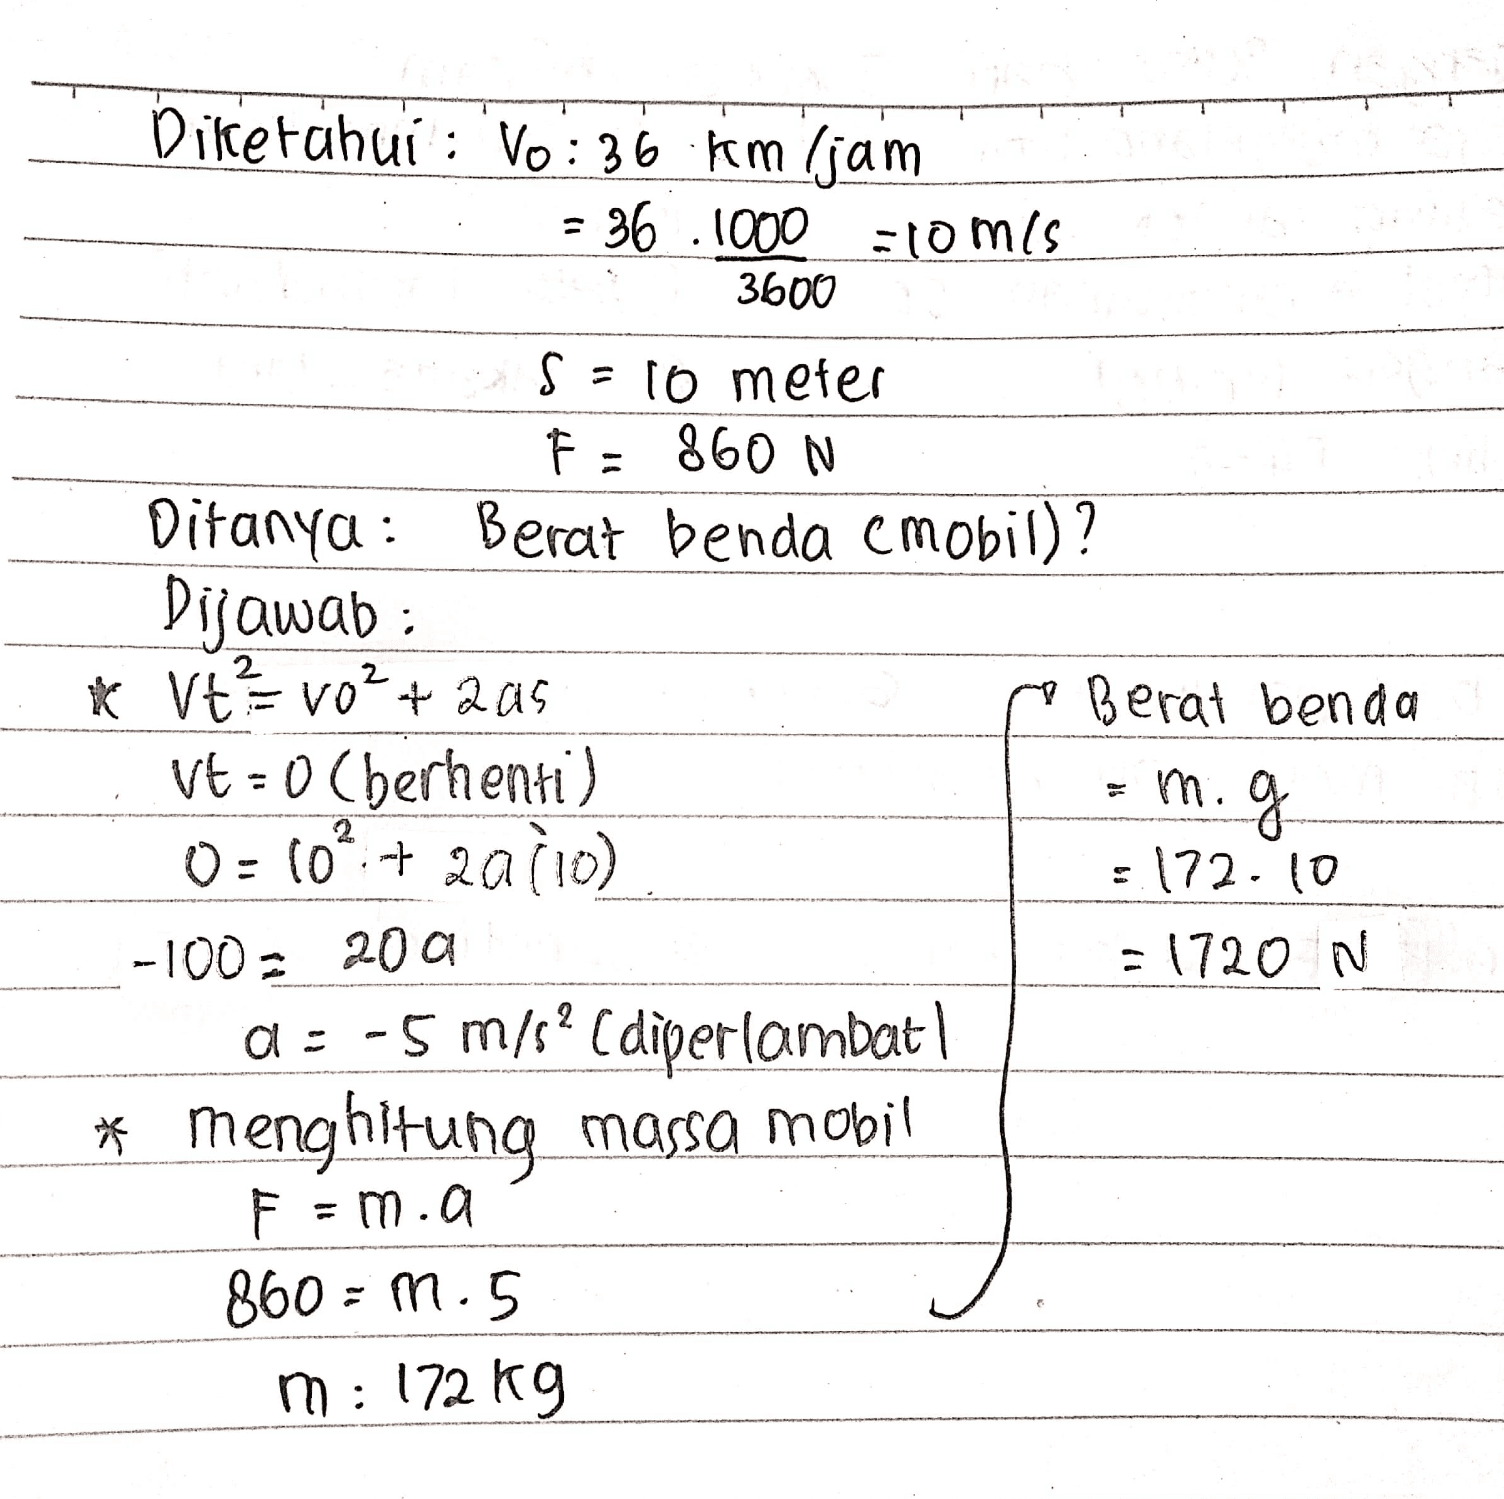 Diketahui : Vo : 36 km/jam
= 36 . 1000/3600 = 10 m/s
S = 10 meter
F = 860 N
Ditanya : Berat benda (mobil)?
Dijawab :
* Vt² = vo² + 2as
vt = 0 (berhenti)
0 = 10² + 2a(10)
-100 = 20a
a = -5 m/s² (diperlambat)
* menghitung massa mobil
F = m.a
860 = m.5
m : 172 kg
Berat benda
= m.g
= 172.10
= 1720 N